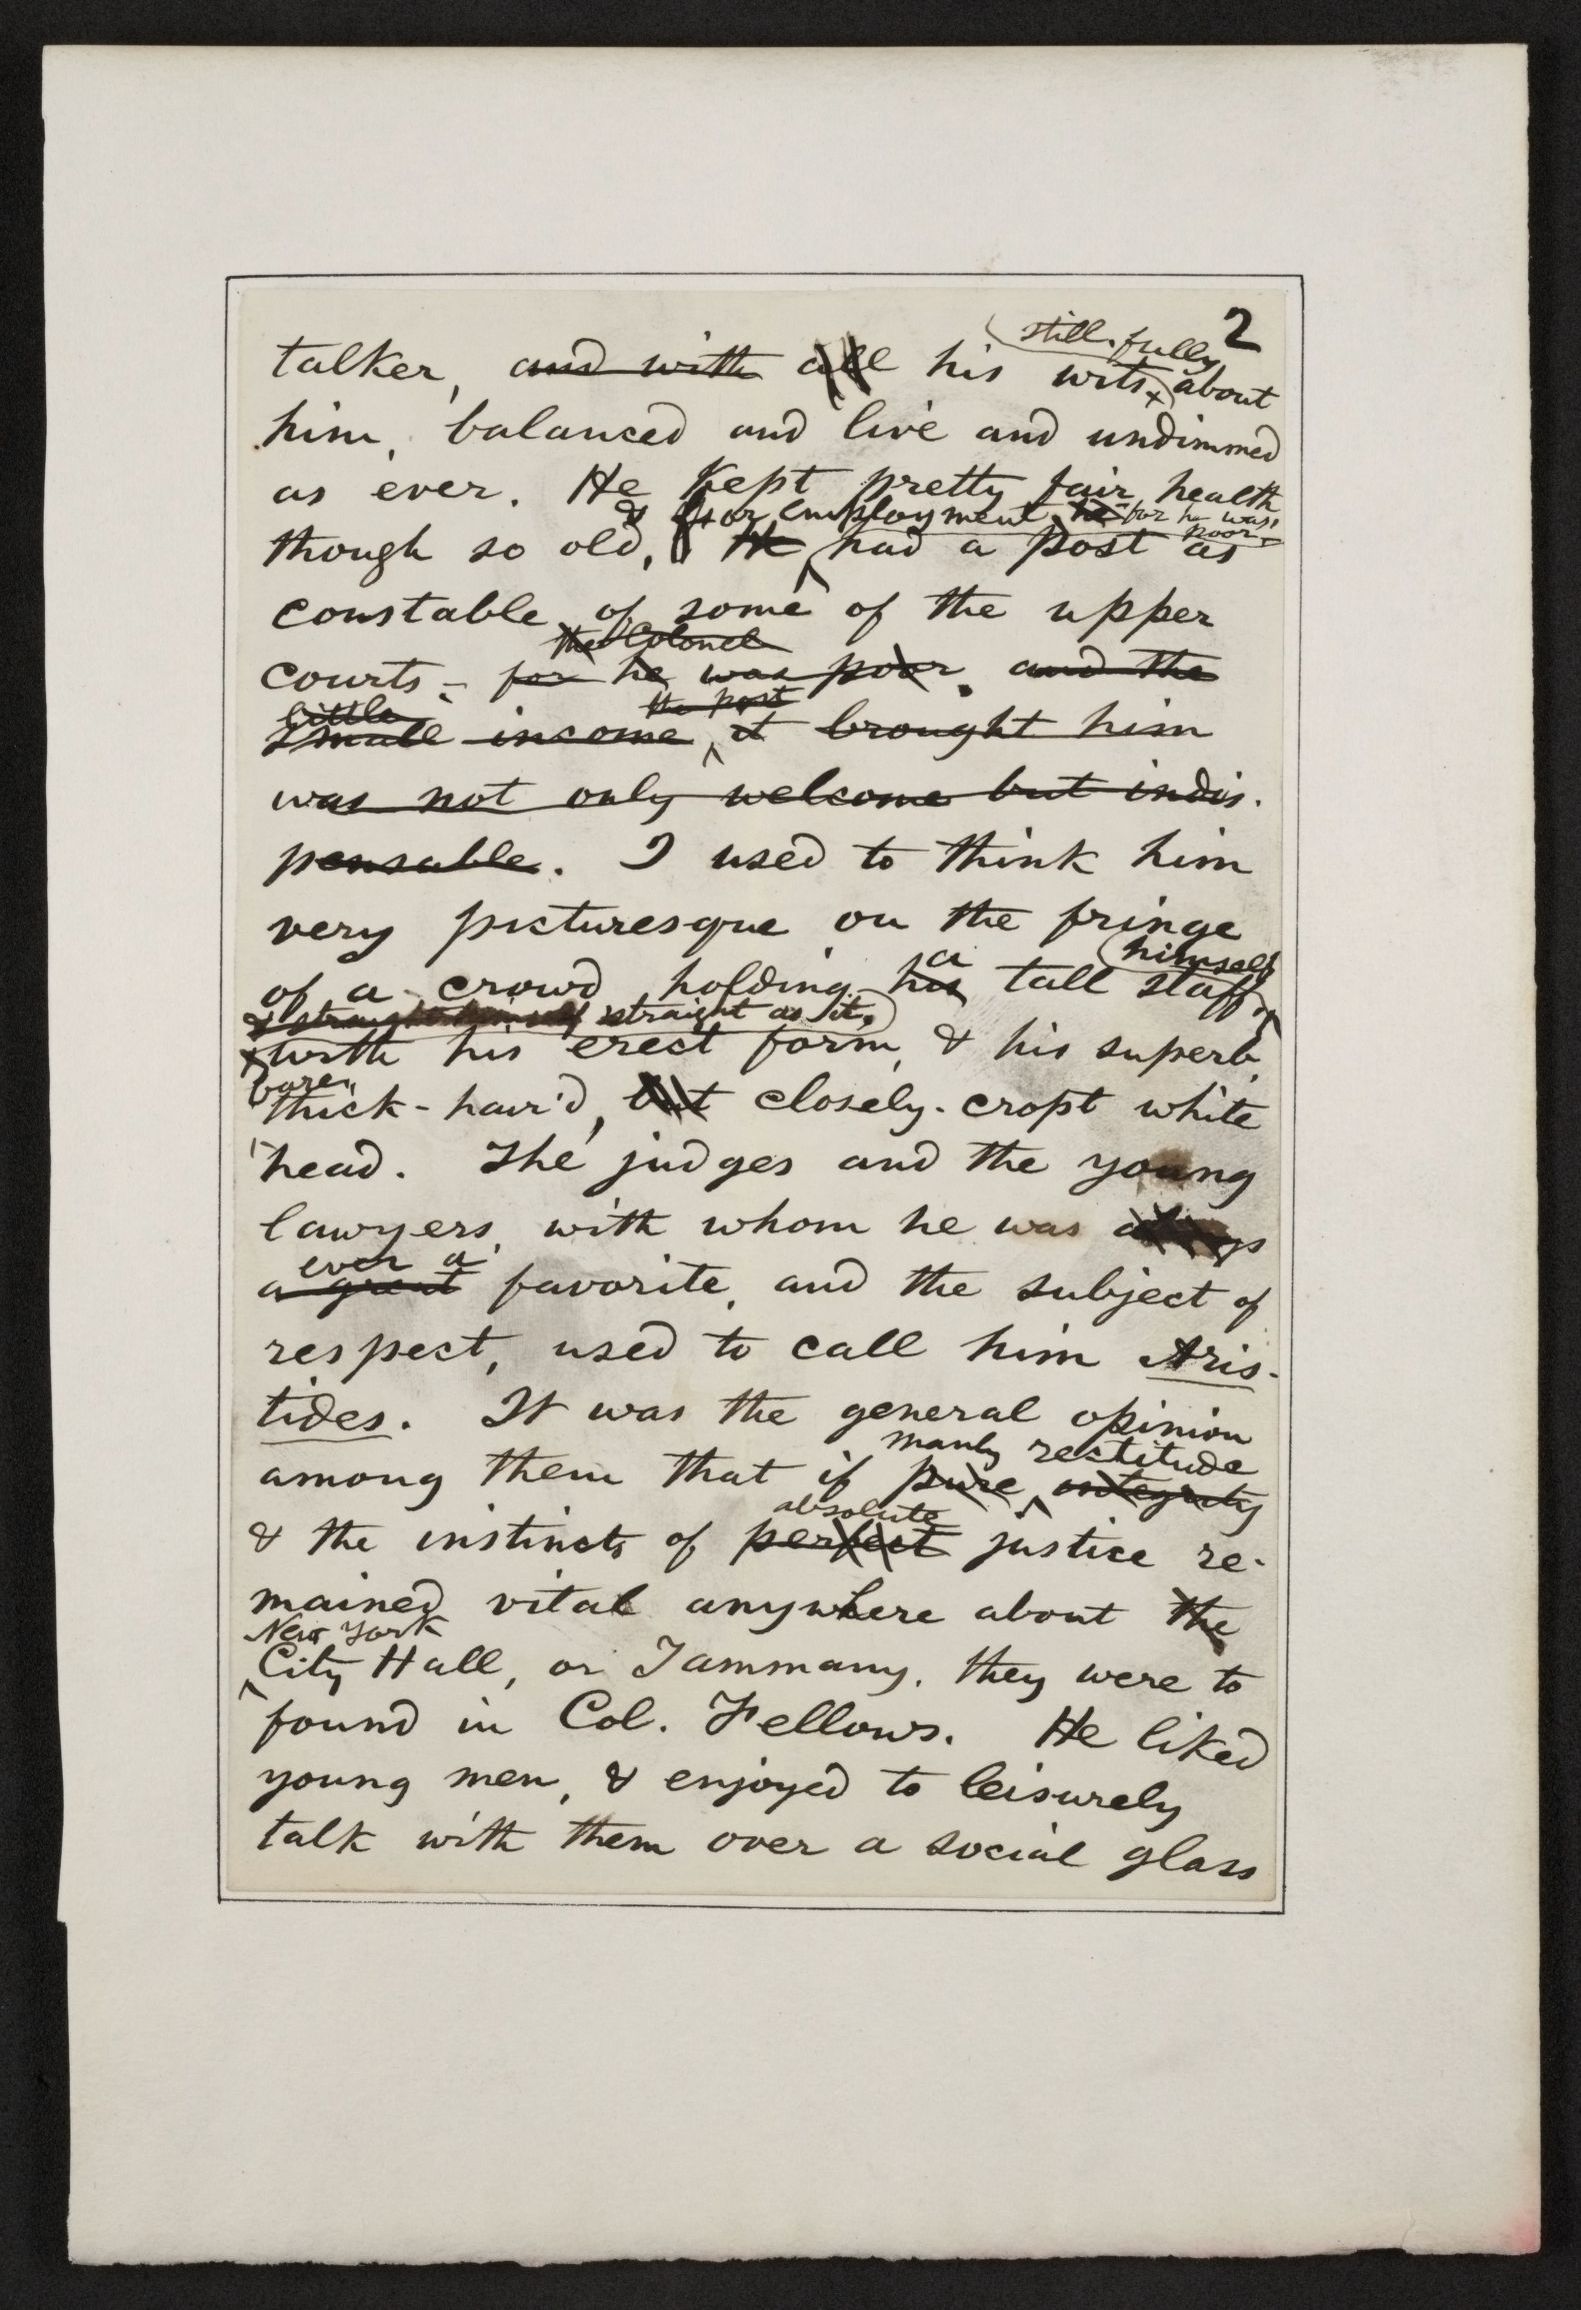 2
still fully
talker, and with all his wits about
him, balanced and live and undimmed
as ever. He kept pretty fair health
& for employment he for he was poor
though so old, He had a post as
constable of some of the upper
the Colonel
courts – for he was poor. and the
little the post
small income, it brought him
was not only welcome but indis-
pensable. I used to think him
very picturesque on the fringe
a himself
of a crowd holding his tall staff,
& straight himself straight as it,
with his erect form, & his superb,
bare,
thick-hair'd, but closely-cropt white
head. The judges and the young
lawyers, with whom he was
ever a
a great favorite, and the subject of
respect, used to call him Aris-
tides. It was the general opinion
manly rectitude
among them that if pure integrity
absolute
& the instincts of perfect justice re-
mained vital anywhere about the
New York
City Hall, or Tammany, they were to
found in Col. Fellows. He liked
young men, & enjoyed to leisurely
talk with them over a social glass